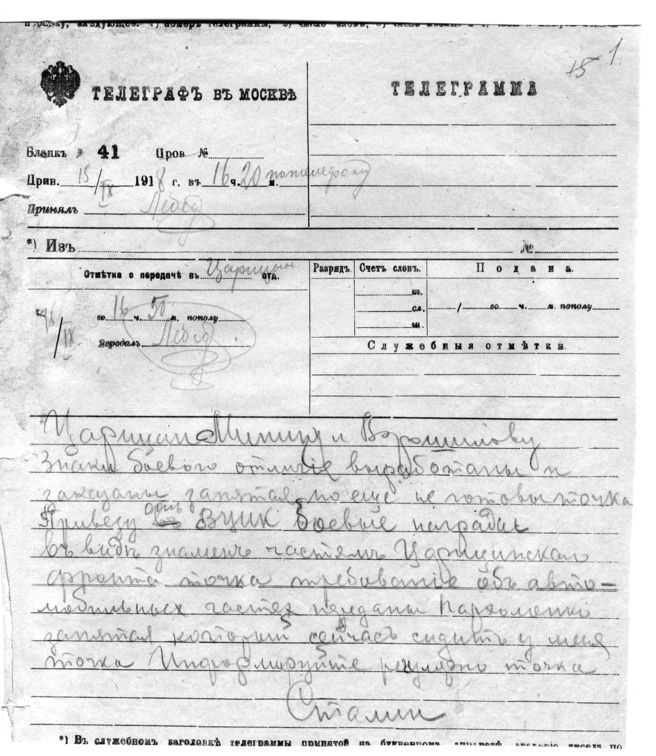 15 1.
ТЕЛЕГРАФЪ ВЪ МОСКВѢ
ТЕЛЕГРАММА
Бланкъ № 41 Пров №
Прин. 15/IX 1918 г. въ 16 ч. 20 м. по телефону
Принялъ
*) Изъ №
Отмѣтка о передачѣ въ Царицын отд.
Разрядъ Счетъ словъ. Подана.
во 16 ч. 50 м. пополу
Передалъ
го. сл. / во ч. м. пополу
Служебныя отмѣтки.
Царицын Минину и Ворошилову
Знаки боевого отличие выработаны и
заказаны запятая но еще не готовы точка
Привезу отъ ВЦИК боевые награды
въ видѣ знаменъ частямъ Царицинскаго
фронта точка требование объ авто-
мобильных частях переданы Пархоменко
запятая который сейчасъ сидитъ у меня
точка Информируйте регулярно точка
Сталин
*) Въ служебномъ заголовкѣ телеграммы принятой на буквенномъ